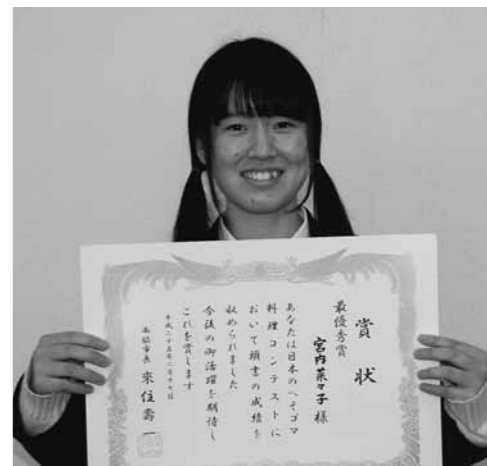 賞状
最優秀賞
宮内菜々子様
あなたは日本のへそゴマ
料理コンテストに
おいて頭書の成績を
収められました
今後の御活躍を期待し
これを賞します
平成二十五年二月十七日
西脇市長 來住壽一